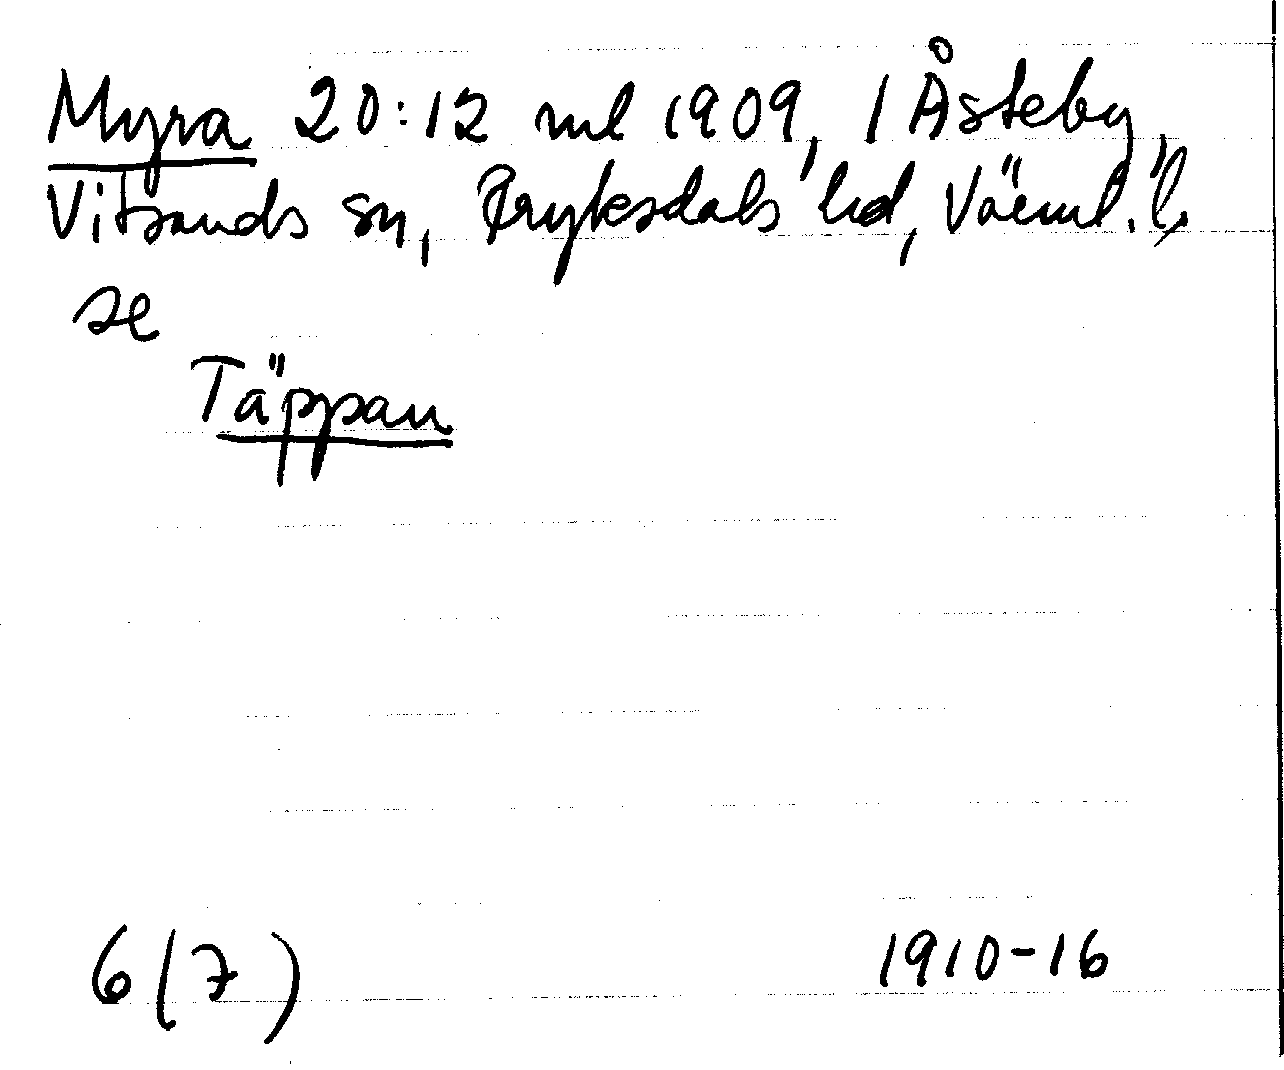 Myra 20:12 ml 1909, 1 Åsteby,
Vitsands sn, Fryksdals hd, Värml. l.
se
Täppan
6 (7) 1910-16